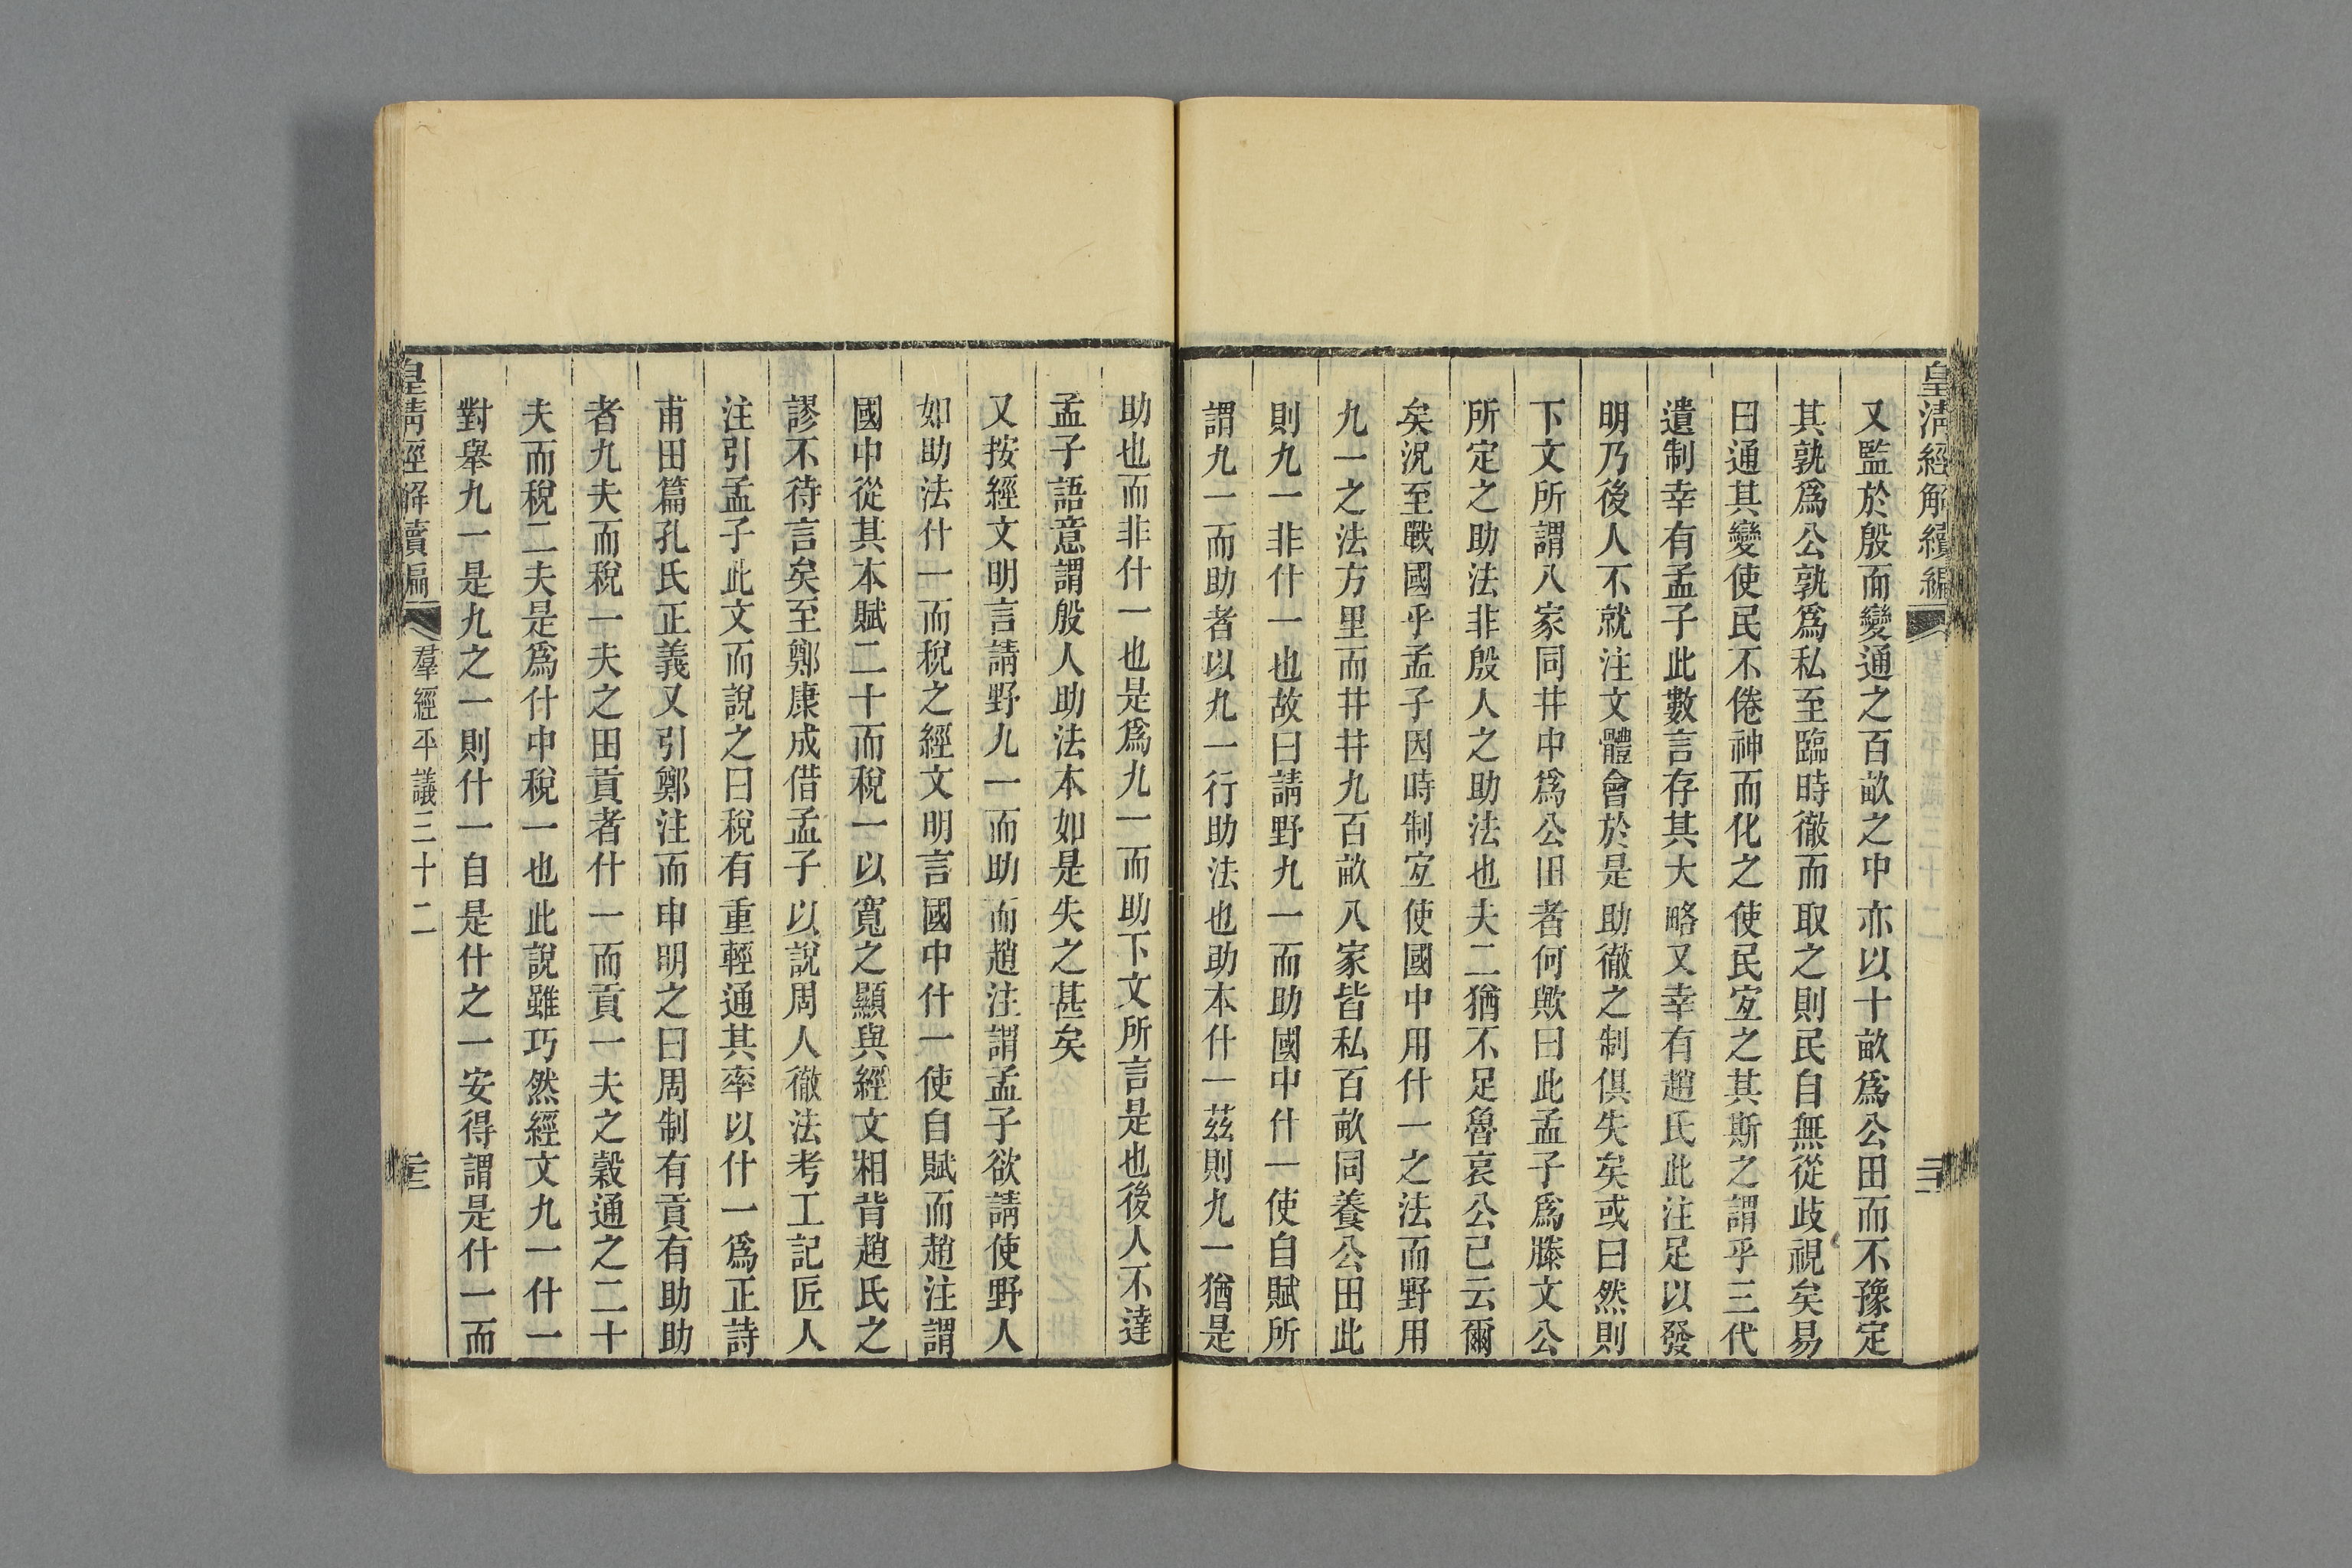 皇清經解續編
又監於殷而變通之百畝之中亦以十畝爲公田而不豫定
其孰爲公孰爲私至臨時徹而取之則民自無從歧視矣易
曰通其變使民不倦神而化之使民宜之其斯之謂乎三代
遺制幸有孟子此數言存其大略又幸有趙氏此注足以發
明乃後人不就注文體會於是助徹之制俱失矣或曰然則
下文所謂八家同井中爲公田者何歟曰此孟子爲滕文公
所定之助法非殷人之助法也夫二猶不足魯哀公已云爾
矣況至戰國乎孟子因時制宜使國中用什一之法而野用
九一之法方里而井井九百畝八家皆私百畝同養公田此
則九一非什一也故曰請野九一而助國中什一使自賦所
謂九一而助者以九一行助法也助本什一茲則九一猶是
助也而非什一也是爲九一而助下文所言是也後人不達
孟子語意謂殷人助法本如是失之甚矣
又按經文明言請野九一而助而趙注謂孟子欲請使野人
如助法什一而稅之經文明言國中什一使自賦而趙注謂
國中從其本賦二十而稅一以寬之顯與經文相背趙氏之
謬不待言矣至鄭康成借孟子以說周人徹法考工記匠人
注引孟子此文而說之曰稅有重輕通其率以什一爲正詩
甫田篇孔氏正義又引鄭注而申明之曰周制有貢有助助
者九夫而稅一夫之田貢者什一而貢一夫之穀通之二十
夫而稅二夫是爲什中稅一也此說雖巧然經文九一什一
對舉九一是九之一則什一自是什之一安得謂是什一而
皇清經解續編 羣經平議三十二